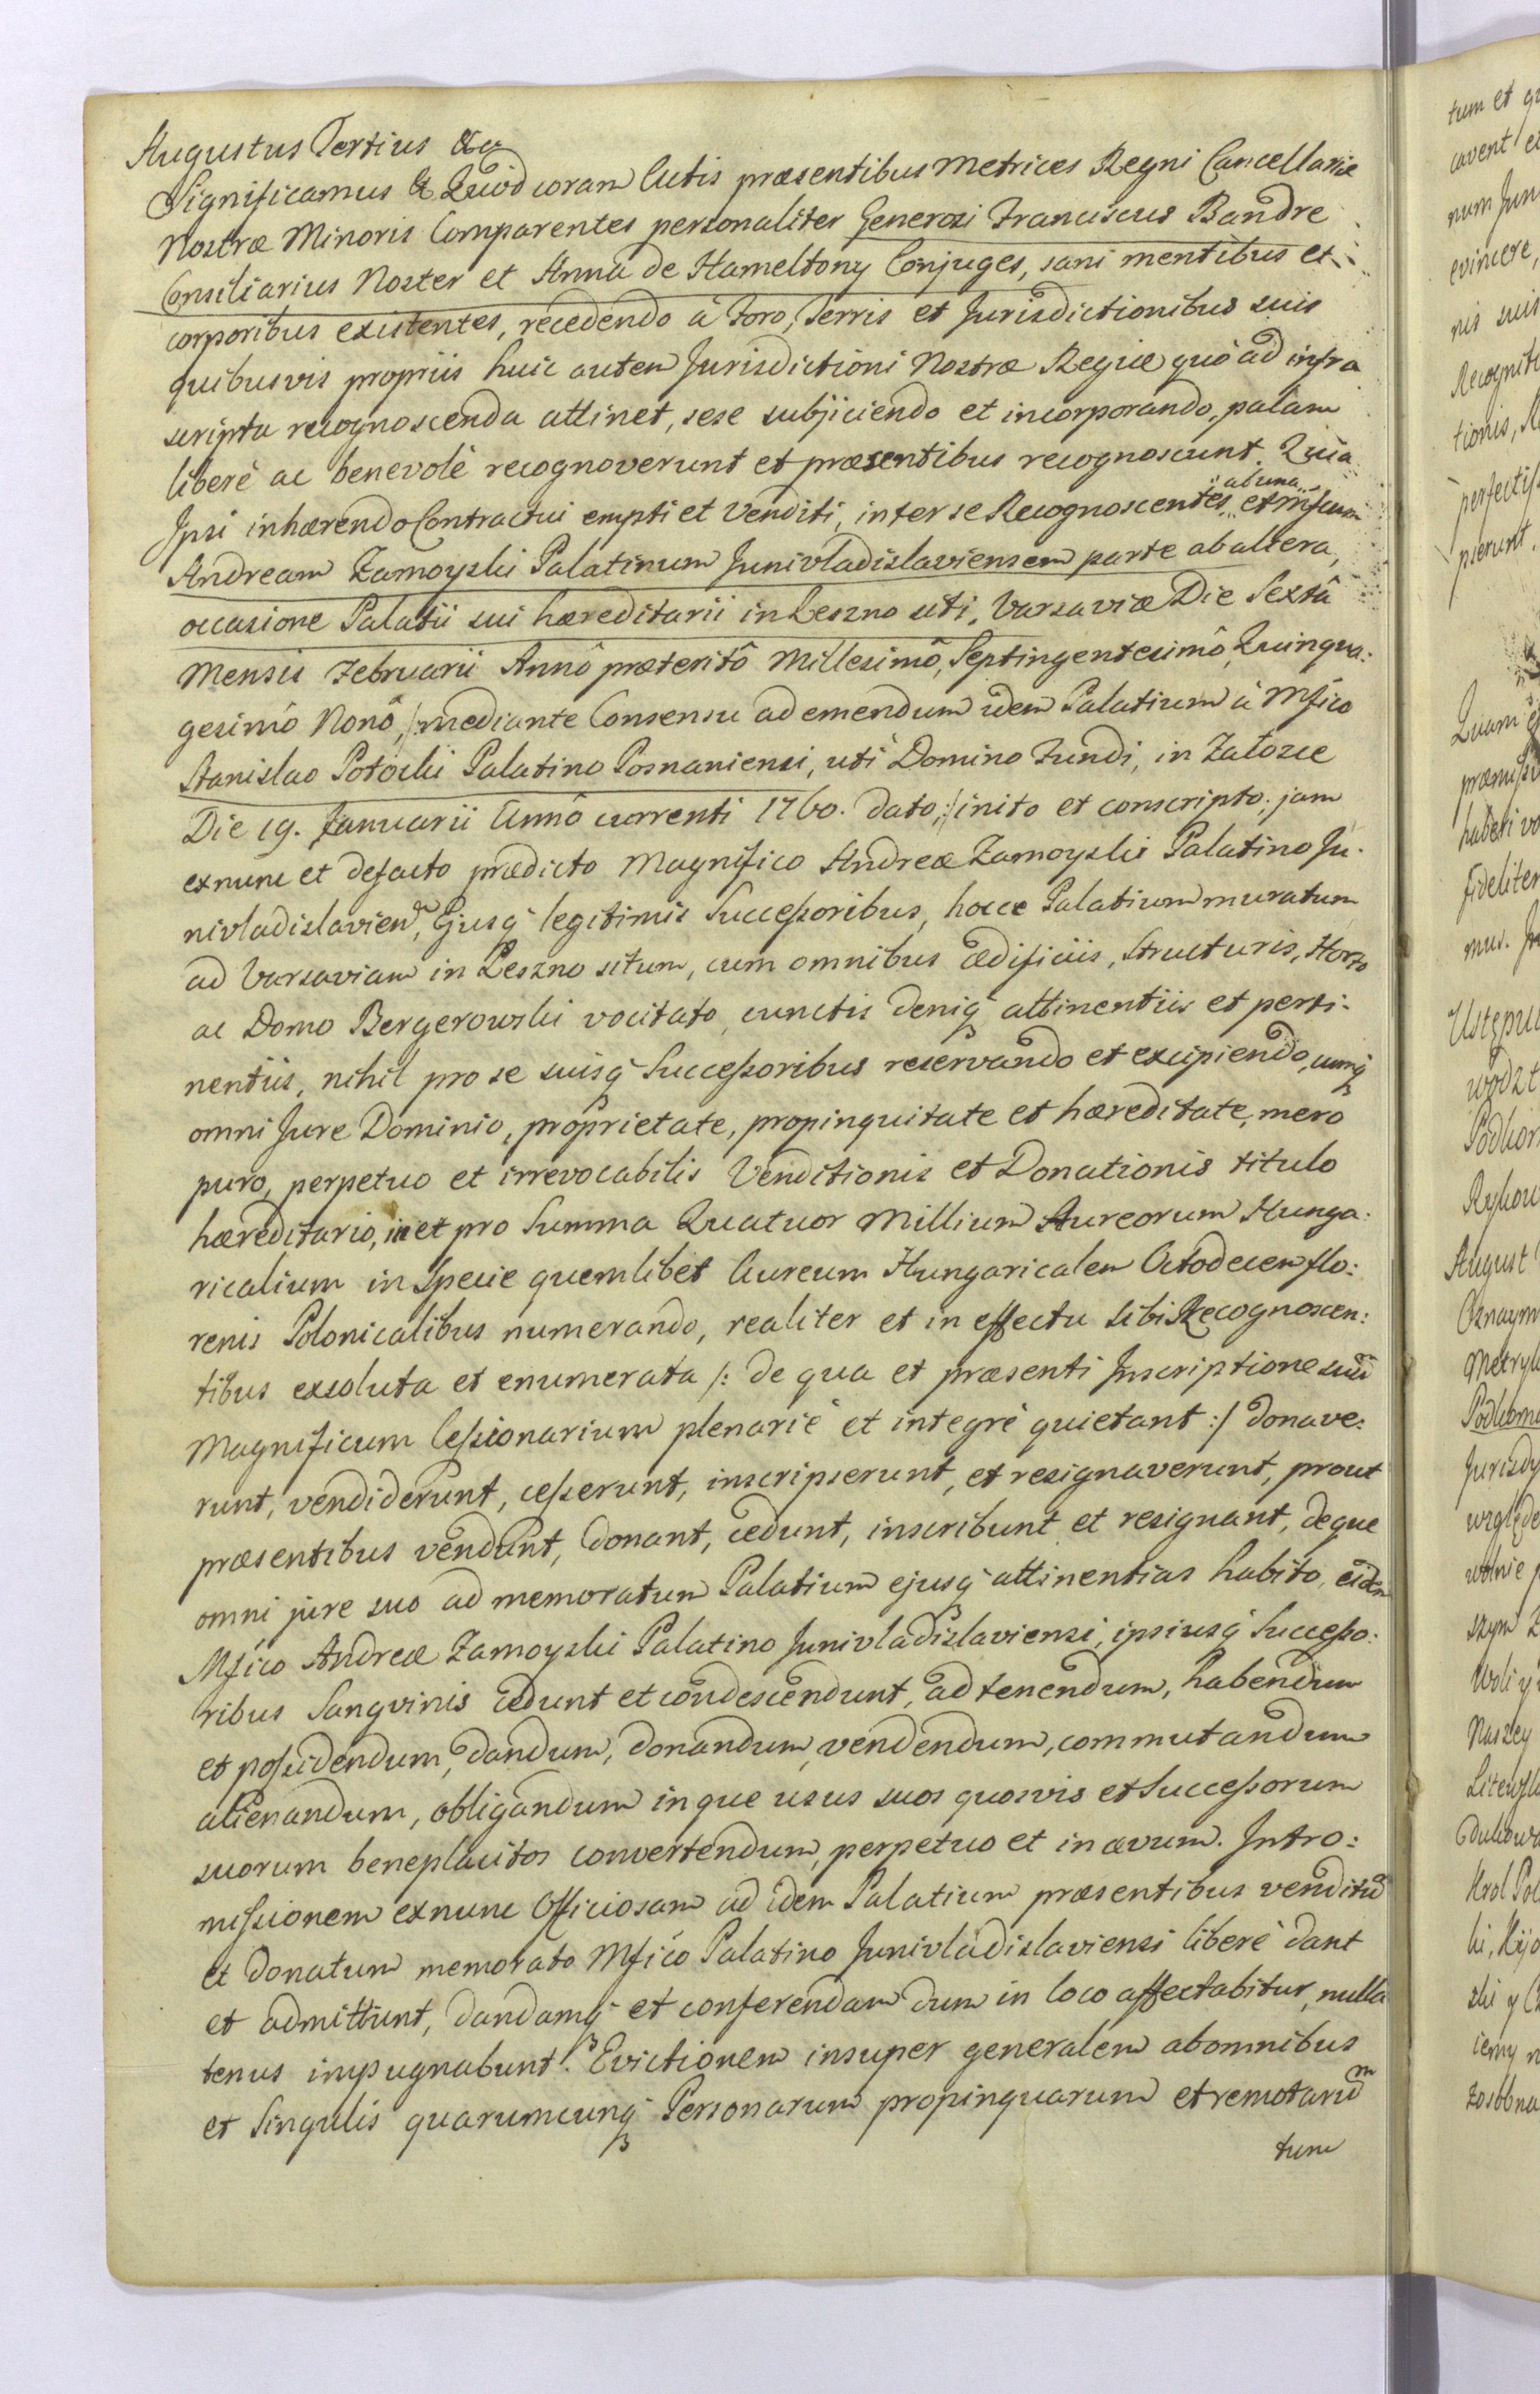 Augustus Tertius &a
Significamus &a Quod coram Actis præsentibus Metrices Regni Cancellariæ
Nostræ Minoris Comparentes personaliter Generosi Franciscus Bandre
Consiliarius Noster et Anna de Hameltony Conjuges, sani mentibus et
corporibus existentes, recedendo à Foro, Terris et Jurisdictionibus suis
quibusvis propriis huic autem Jurisdictioni Nostræ Regiæ quò ad infra
scripta recognoscenda attinet, sese subjiciendo et incorporando, palam
liberè ac benevolè recognoverunt et præsentibus recognoscunt. Quia
ab una
Ipsi inhærendo Contractui empti et Venditi, inter se Recognoscentes et Mficum
Andream Zamoyski Palatinum Junivladislaviensem parte ab altera,
occasione Palatii sui hæreditarii in Leszno siti, Varsaviæ Die Sextâ
Mensis Februarii Annô præteritô Millesimô, Septingentesimô, Quinqua:
gesimô Nonô, /: mediante Consensu ad emendum idem Palatium à Mfico
Stanislao Potocki Palatino Posnaniensi, uti Domino Fundi, in Załozce
Die 19. Januarii Annô currenti 1760. dato, :/ inito et conscripto; jam
exnunc et defacto prædicto Magnifico Andreæ Zamoyski Palatino Ju:
nivladislavien, Ejusq legitimis Successoribus, hocce Palatium muratum
ad Varsaviam in Leszno situm, cum omnibus ædificiis, Structuris, Horto
ac Domo Bergerowski vocitato, cunctis deniq attinentiis et perti:
nentiis, nihil pro se suisq Successoribus reservando et excipiendo, cumq
omni Jure Dominio, proprietate, propinquitate et hæreditate, mero
puro, perpetuo et irrevocabilis Venditionis et Donationis titulo
hæreditario, in et pro Summa Quatuor Millium Aureorum Hunga:
ricalium in Specie quemlibet Aureum Hungaricalem Octodecem flo:
renis Polonicalibus numerando, realiter et in effectu sibi Recognoscen:
tibus exsoluta et enumerata /: de qua et præsenti Inscriptione suâ
Magnificum Cessionarium plenariè et integrè quietant :/ donave:
runt, vendiderunt, cesserunt, inscripserunt, et resignaverunt, prout
præsentibus vendunt, donant, cedunt, inscribunt et resignant, deque
omni jure suo ad memoratum Palatium ejusq attinentias habito, eidem
Mfico Andreæ Zamoyski Palatino Junivladislaviensi, ipsiusq Successo:
ribus Sangvinis cedunt et condescendunt, ad tenendum, habendum
et possidendum, dandum, donandum, vendendum, commutandum
alienandum, obligandum inque usus suos quosvis et Successorum
suorum beneplacitos convertendum, perpetuo et in ævum. Intro:
missionem exnunc Officiosam ad idem Palatium præsentibus venditum
et donatum memorato Mfico Palatino Junivladislaviensi liberè dant
et admittunt, dandamq et conferendam dum in loco affectabitur, nulla
tenus impugnabunt. Evictionem insuper generalem ab omnibus
et Singulis quarumcunq Personarum propinquarum et remotarum
tum
tum et
num
evincere,
nis suis
tionis,
pierunt.
Quam
haberi
fideliter
mus.
August
Naszey